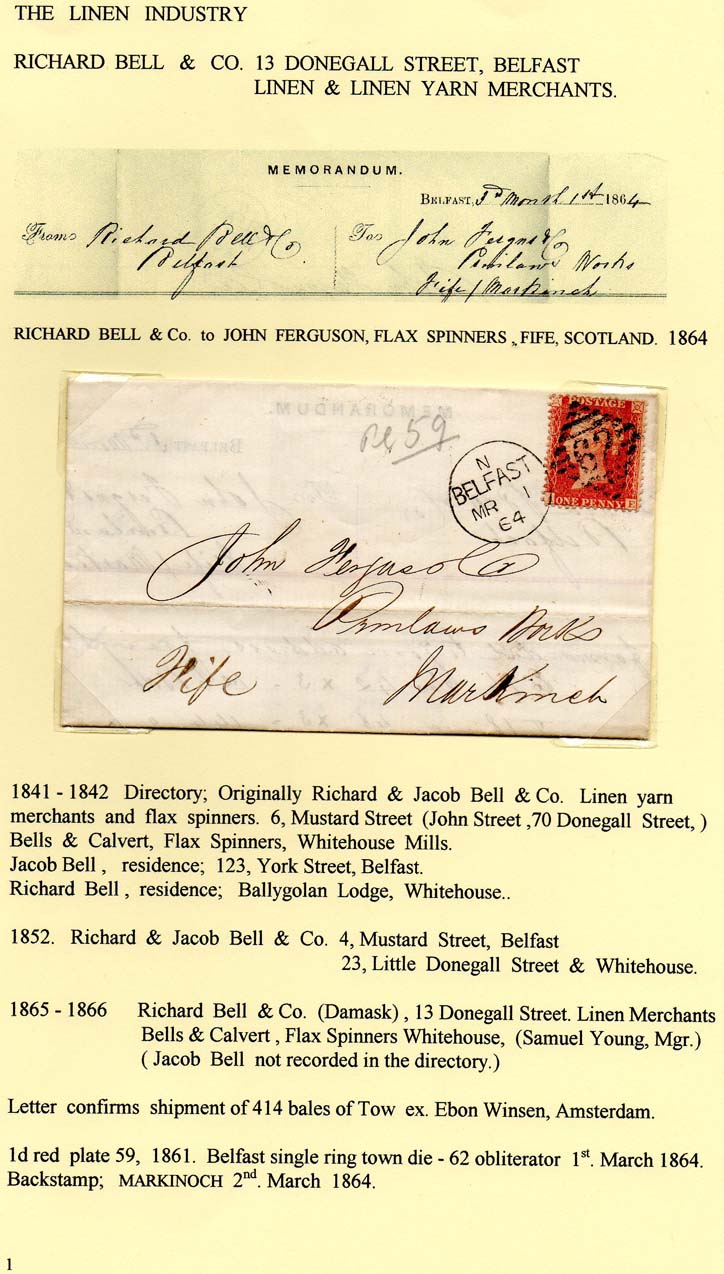 THE LINEN INDUSTRY
RICHARD BELL & CO. 13 DONEGALL STREET, BELFAST
LINEN & LINEN YARN MERCHANTS.
MEMORANDUM.
BELFAST, 3d Month 1st 1864
From Richard Bell & Co
Belfast
To John Fergus & Co
Prinlaws Works
Fife / Markinch
RICHARD BELL & Co. to JOHN FERGUSON, FLAX SPINNERS, FIFE, SCOTLAND. 1864
MEMORANDUM.
59
POSTAGE
62
I ONE PENNY E
N
BELFAST
MR 1
64
John Fergus & Co
Prinlaws Works
Fife Markinch
1841 - 1842 Directory; Originally Richard & Jacob Bell & Co. Linen yarn
merchants and flax spinners. 6, Mustard Street (John Street ,70 Donegall Street, )
Bells & Calvert, Flax Spinners, Whitehouse Mills.
Jacob Bell , residence; 123, York Street, Belfast.
Richard Bell , residence; Ballygolan Lodge, Whitehouse..
1852. Richard & Jacob Bell & Co. 4, Mustard Street, Belfast
23, Little Donegall Street & Whitehouse.
1865 - 1866 Richard Bell & Co. (Damask) , 13 Donegall Street. Linen Merchants
Bells & Calvert , Flax Spinners Whitehouse, (Samuel Young, Mgr.)
( Jacob Bell not recorded in the directory.)
Letter confirms shipment of 414 bales of Tow ex. Ebon Winsen, Amsterdam.
1d red plate 59, 1861. Belfast single ring town die - 62 obliterator 1st. March 1864.
Backstamp; MARKINOCH 2nd. March 1864.
1